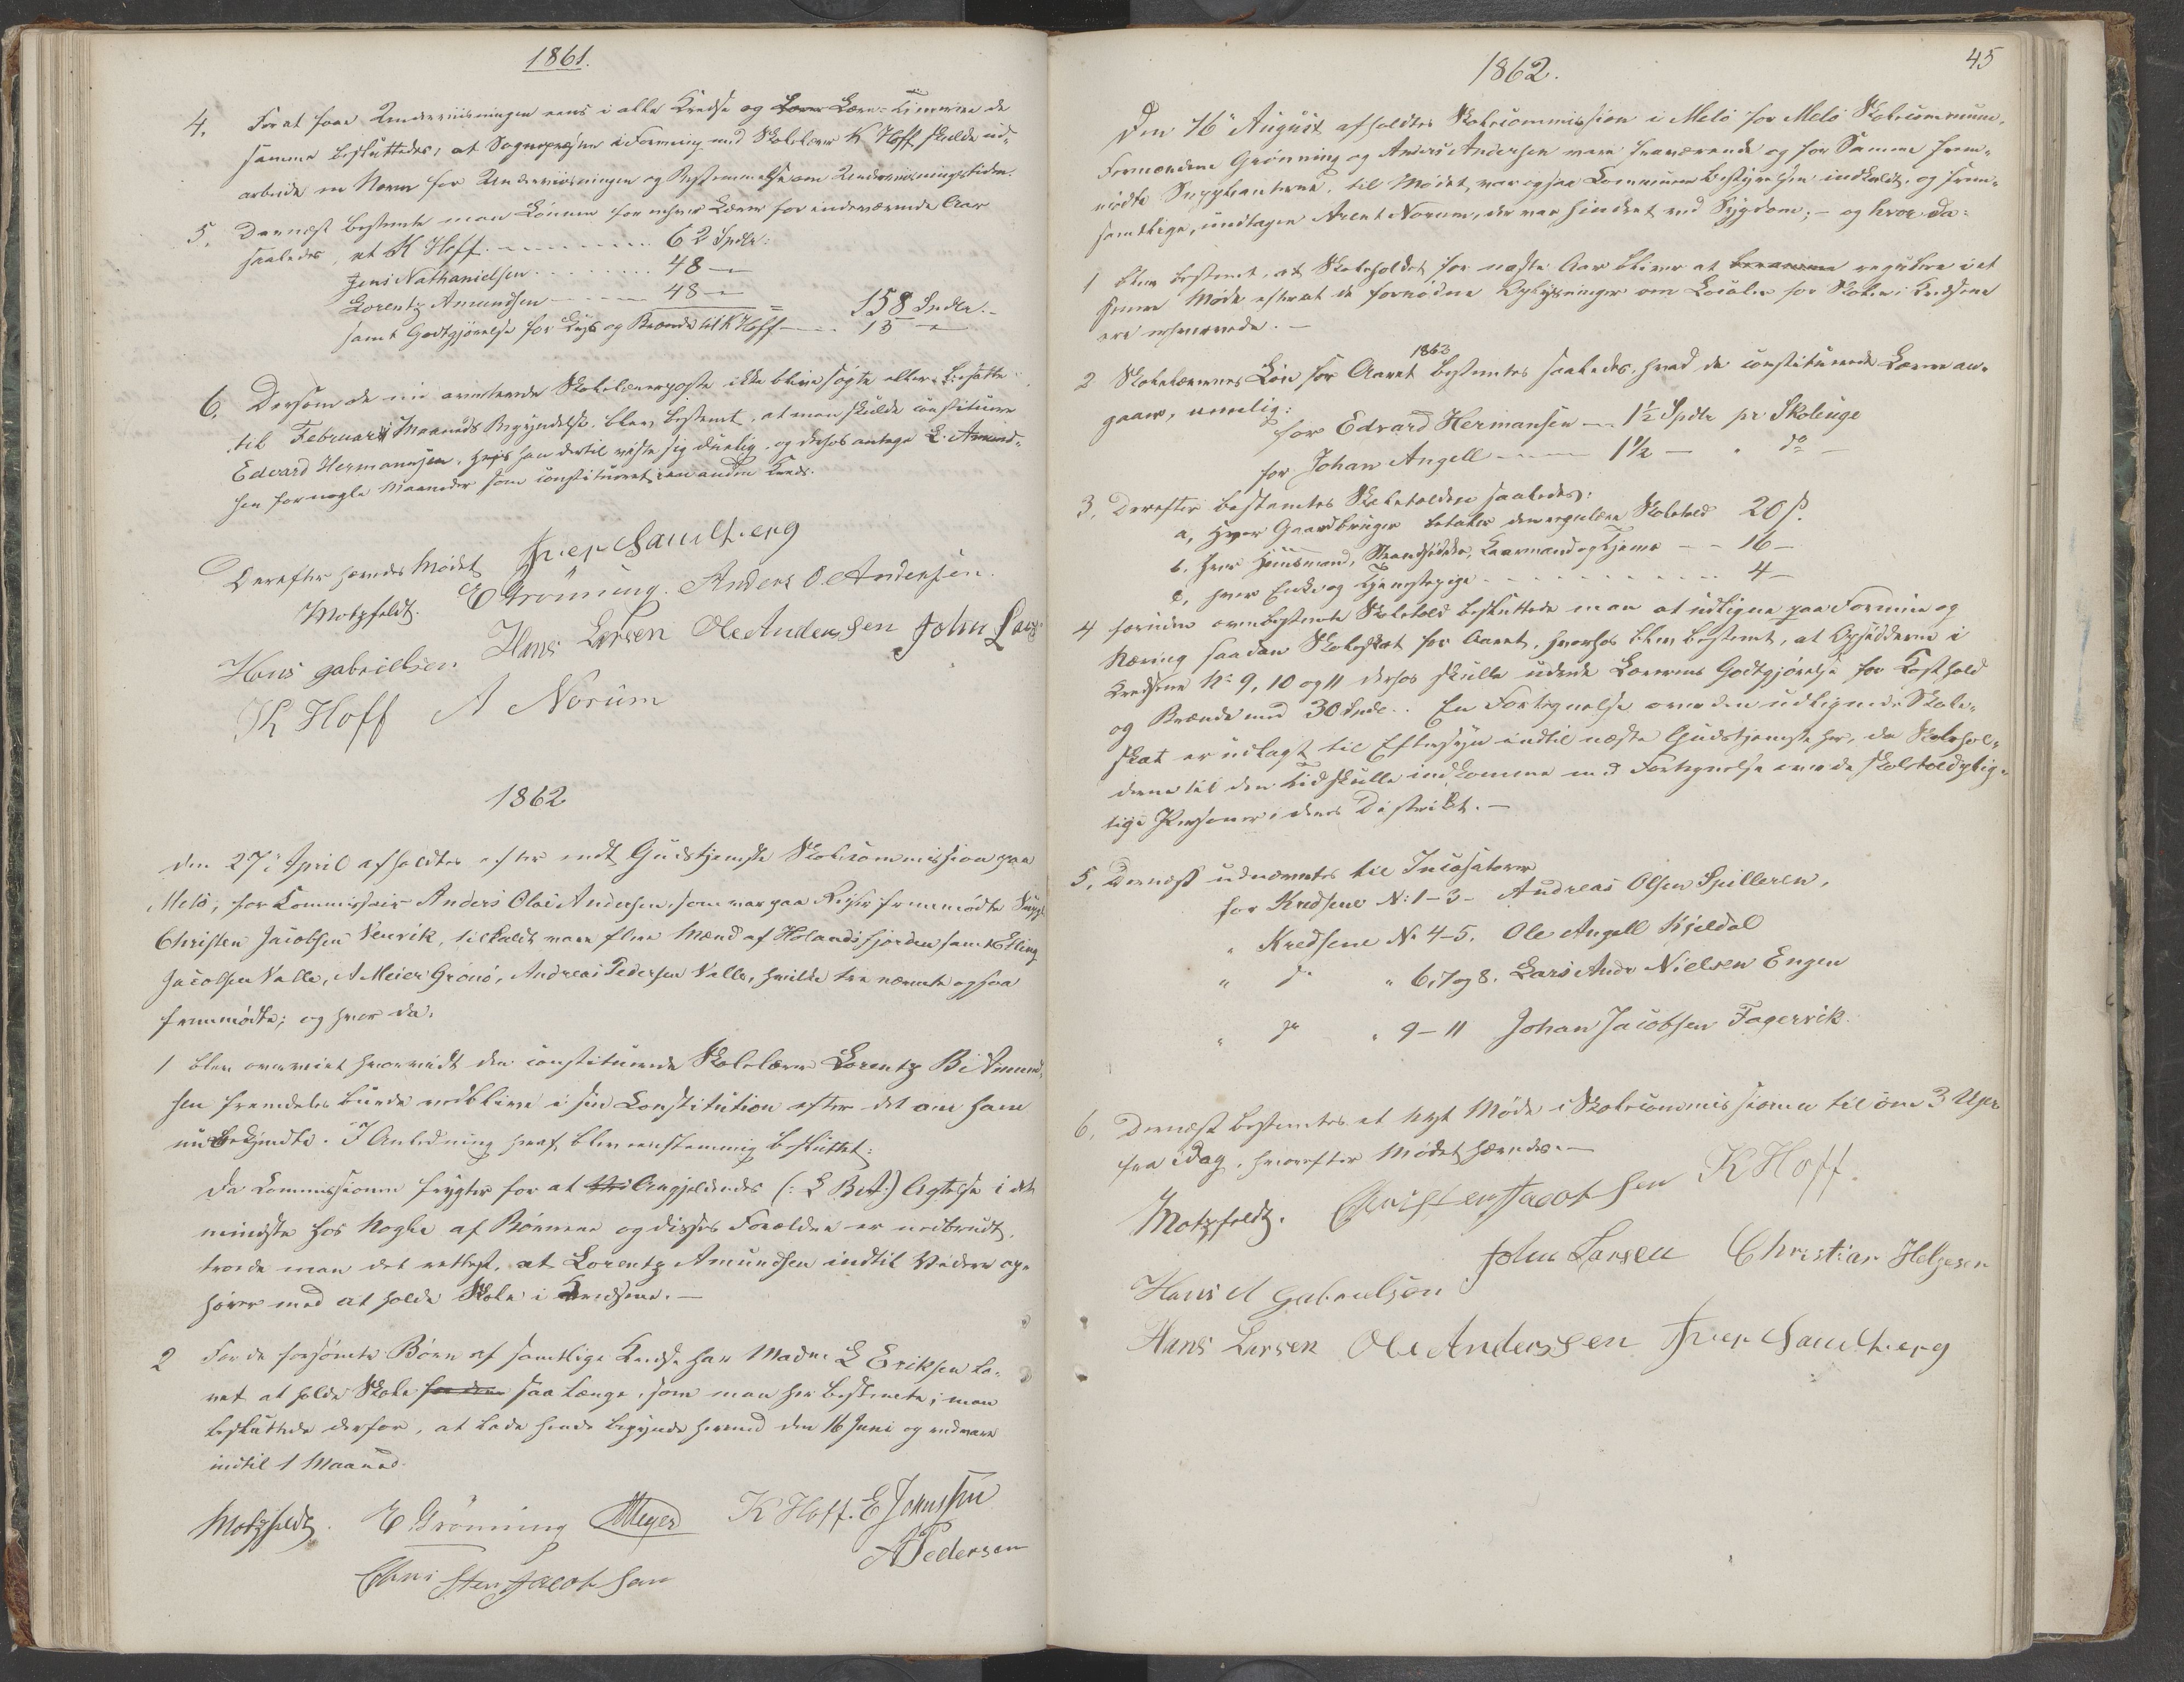 1861.
4. For at faae Underviisningen eens i alle Kredse og Lære-Timerne de
samme besluttedes, at Sognepræsten i Forening med Skolelærer K Hoff skulde ud-
arbeide en Norm for Underviisningen og Bestemmelse om Underviisningstiden.
5. Dernæst bestemte man Lønnen for enhver Lærer for indeværende Aar
saaledes, at K Hoff. 62 Spdlr:
Jens Nathanielsen 48 —
Lorentz Amundsen 48 —
158 Spdlr. —
samt Godtgjørelse for Lys og Brænde til K Hoff 15 —
6. Dersom de nu averterede Skolelærerposte ikke bleve søgte eller besatte
til Februari Maaneds Begyndelse, blev bestemt, at man skulde constituere
Edvard Hermannsen, hvis han dertil viste sig duelig, og derhos antage L. Amund-
sen for nogle Maaneder som constitueret i en anden Kreds.
Derefter hævedes Mødet Iver Sandberg
Motzfeldt. E Grönning. Anders O Andersen.
Hans gabrielsen. Hans Larsen Ole Anderssen John Lars
K Hoff A Norum
1862
den 27de April afholdtes efter endt Gudstjeneste Skolecommission paa
Melö, for Commissair Anders Olai Andersen, som var paa Reiser fremmødte Suppl
Christen Jacobsen Venvik, tilkaldt vare flere Mænd af Holandsfjorden samt Elling
Jacobsen Valle, A Meier Grønö, Andreas Pedersen Valle, hvilke tre nævnte ogsaa
fremmødte; og hvor da:
1 blev overveiet hvorvidt den constituerede Skolelærer Lorentz B. Amund-
sen fremdeles burde vedblive i sin Constitution efter det om ham
nu bekjendte. I Anledning heraf blev eenstemmig besluttet:
da Commissionen frygter for at Angjældendes (: L B A:) Agtelse i det
mindste hos Nogle af Børnene og disses Forældre er nedbrudt,
troede man det rettest, at Lorentz Amundsen indtil Videre op-
hører med at holde Skole i Kredsene. —
2 For de forsømte Börn af samtlige Kredse har Madme L Eriksen lo-
vet at holde Skole for dem saa længe, som man her bestemte; man
besluttede derfor, at lade hende begynde hermed den 16 Juni og vedvare
indtil 1 Maaned.
Motzfeldt. E Grönning AMeyer K Hoff. E Johnssen
A Pedersen
Christen Jacobsen
45
1862.
Den 16de August afholdtes Skolecommission i Melö for Melö Skolecommune.
Formændene Grønning og Anders Andersen vare fraværende og for Samme frem-
mødte Suppleanterne, til Mødet var ogsaa Communebestyrelsen indkaldt, og frem-
samtlige, undtagen Arent Norum, der var hindret ved Sygdom; — og hvor da:
1 blev bestemt, at Skoleholdet for næste Aar bliver at regulere i et
senere Møde efterat de fornødne Oplysninger om Localer for Skolen i Kredsene
ere erhvervede. —
1863
2 Skolelærernes Løn for Aaret bestemtes saaledes, hvad de constituerede Lærere an-
gaaer, nemlig:
for Edvard Hermansen — 1½ Spdlr pr Skoleuge
for Johan Angell — 1½ — " do —
3. Derefter bestemtes Skoletolden saaledes:
a, Hver Gaardbruger betaler den regulære Skoletold 20 s.
b. hver Huusmand, Strandsidder, Kaarmand og Tjener — 16 —
c, hver Enke og Tjenestepige 4 —
4 foruden ovenbestemte Skoletold besluttede man at udligne paa Formue og
Næring saadan Skoleskat for Aaret, hvorhos blev bestemt, at Opsidderne i
Kredsene No 9, 10 og 11 derhos skulle udrede Lærerens Godtgjørelse for Kosthold
og Brænde med 30 Spdlr. En Fortegnelse over den udlignede Skole-
skat er udlagt til Eftersyn indtil næste Gudstjeneste her, da Skolefol-
dene til den Tid skulle indkomme med Fortegnelse over de skoletoldplig-
tige Personer i deres Distrikt. —
5. Dernæst udnævntes til Incassatorer
for Kredsene No: 1-3 - Andreas Olsen Spilleren,
" Kredsene No 4-5. Ole Angell Kjeldal
" do " 6, 7 og 8. Lars Andr Nielsen Engen
" do " 9-11 Johan Jacobsen Fagervik.
6. Dernæst bestemtes et nyt Møde i Skolecommissionen til om 3 Uger
fra idag, hvorefter Mødet hævedes. —
Motzfeldt. Christen Jacobsen K Hoff.
John Larsen Christian Helgesen
Hans A gabrielsen
Hans Larsen Ole Anderssen Iver Sandberg